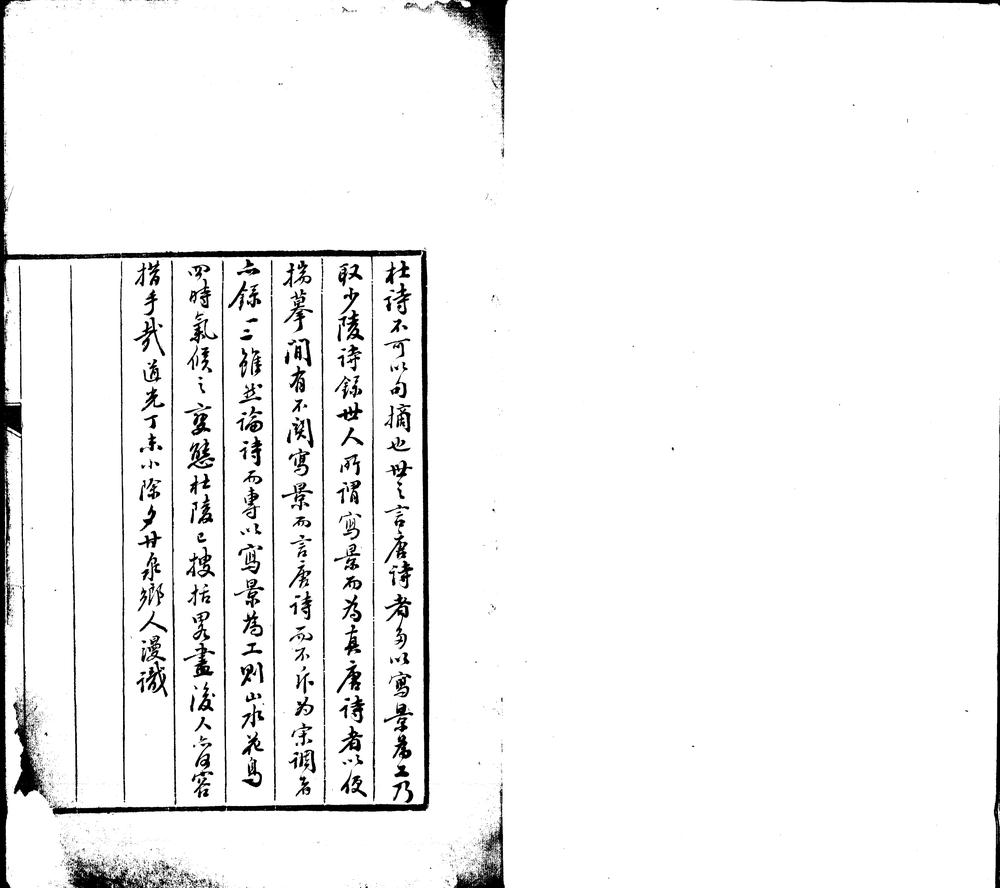 杜詩不可以句摘也世之言唐詩者多以寫景為工乃
取少陵詩錄世人所謂寫景而為真唐詩者以便
揣摹間有不関寫景而言唐詩而不斥为宋調者
亦錄一二雖然論詩而專以寫景為工則山水花鳥
四時氣候之変態杜陵已搜括畧盡後人亦何容
措手哉道光丁未小除夕丹泉鄉人漫識